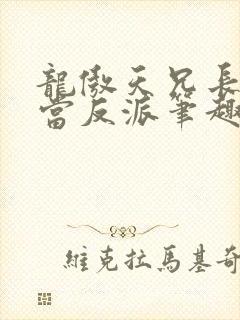 龍傲天兄長
當反派筆趣
維克拉馬基奇